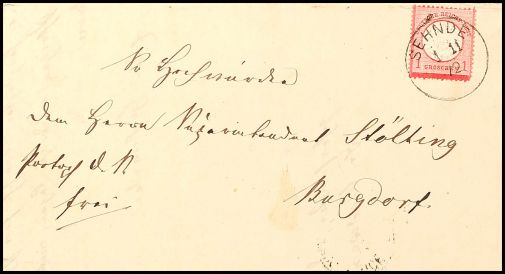 SEHNDE
1 11
1 GROSCHEN 1
Sr Hochwürden
dem Herrn Superintendent Stölting
frei
Burgdorf.